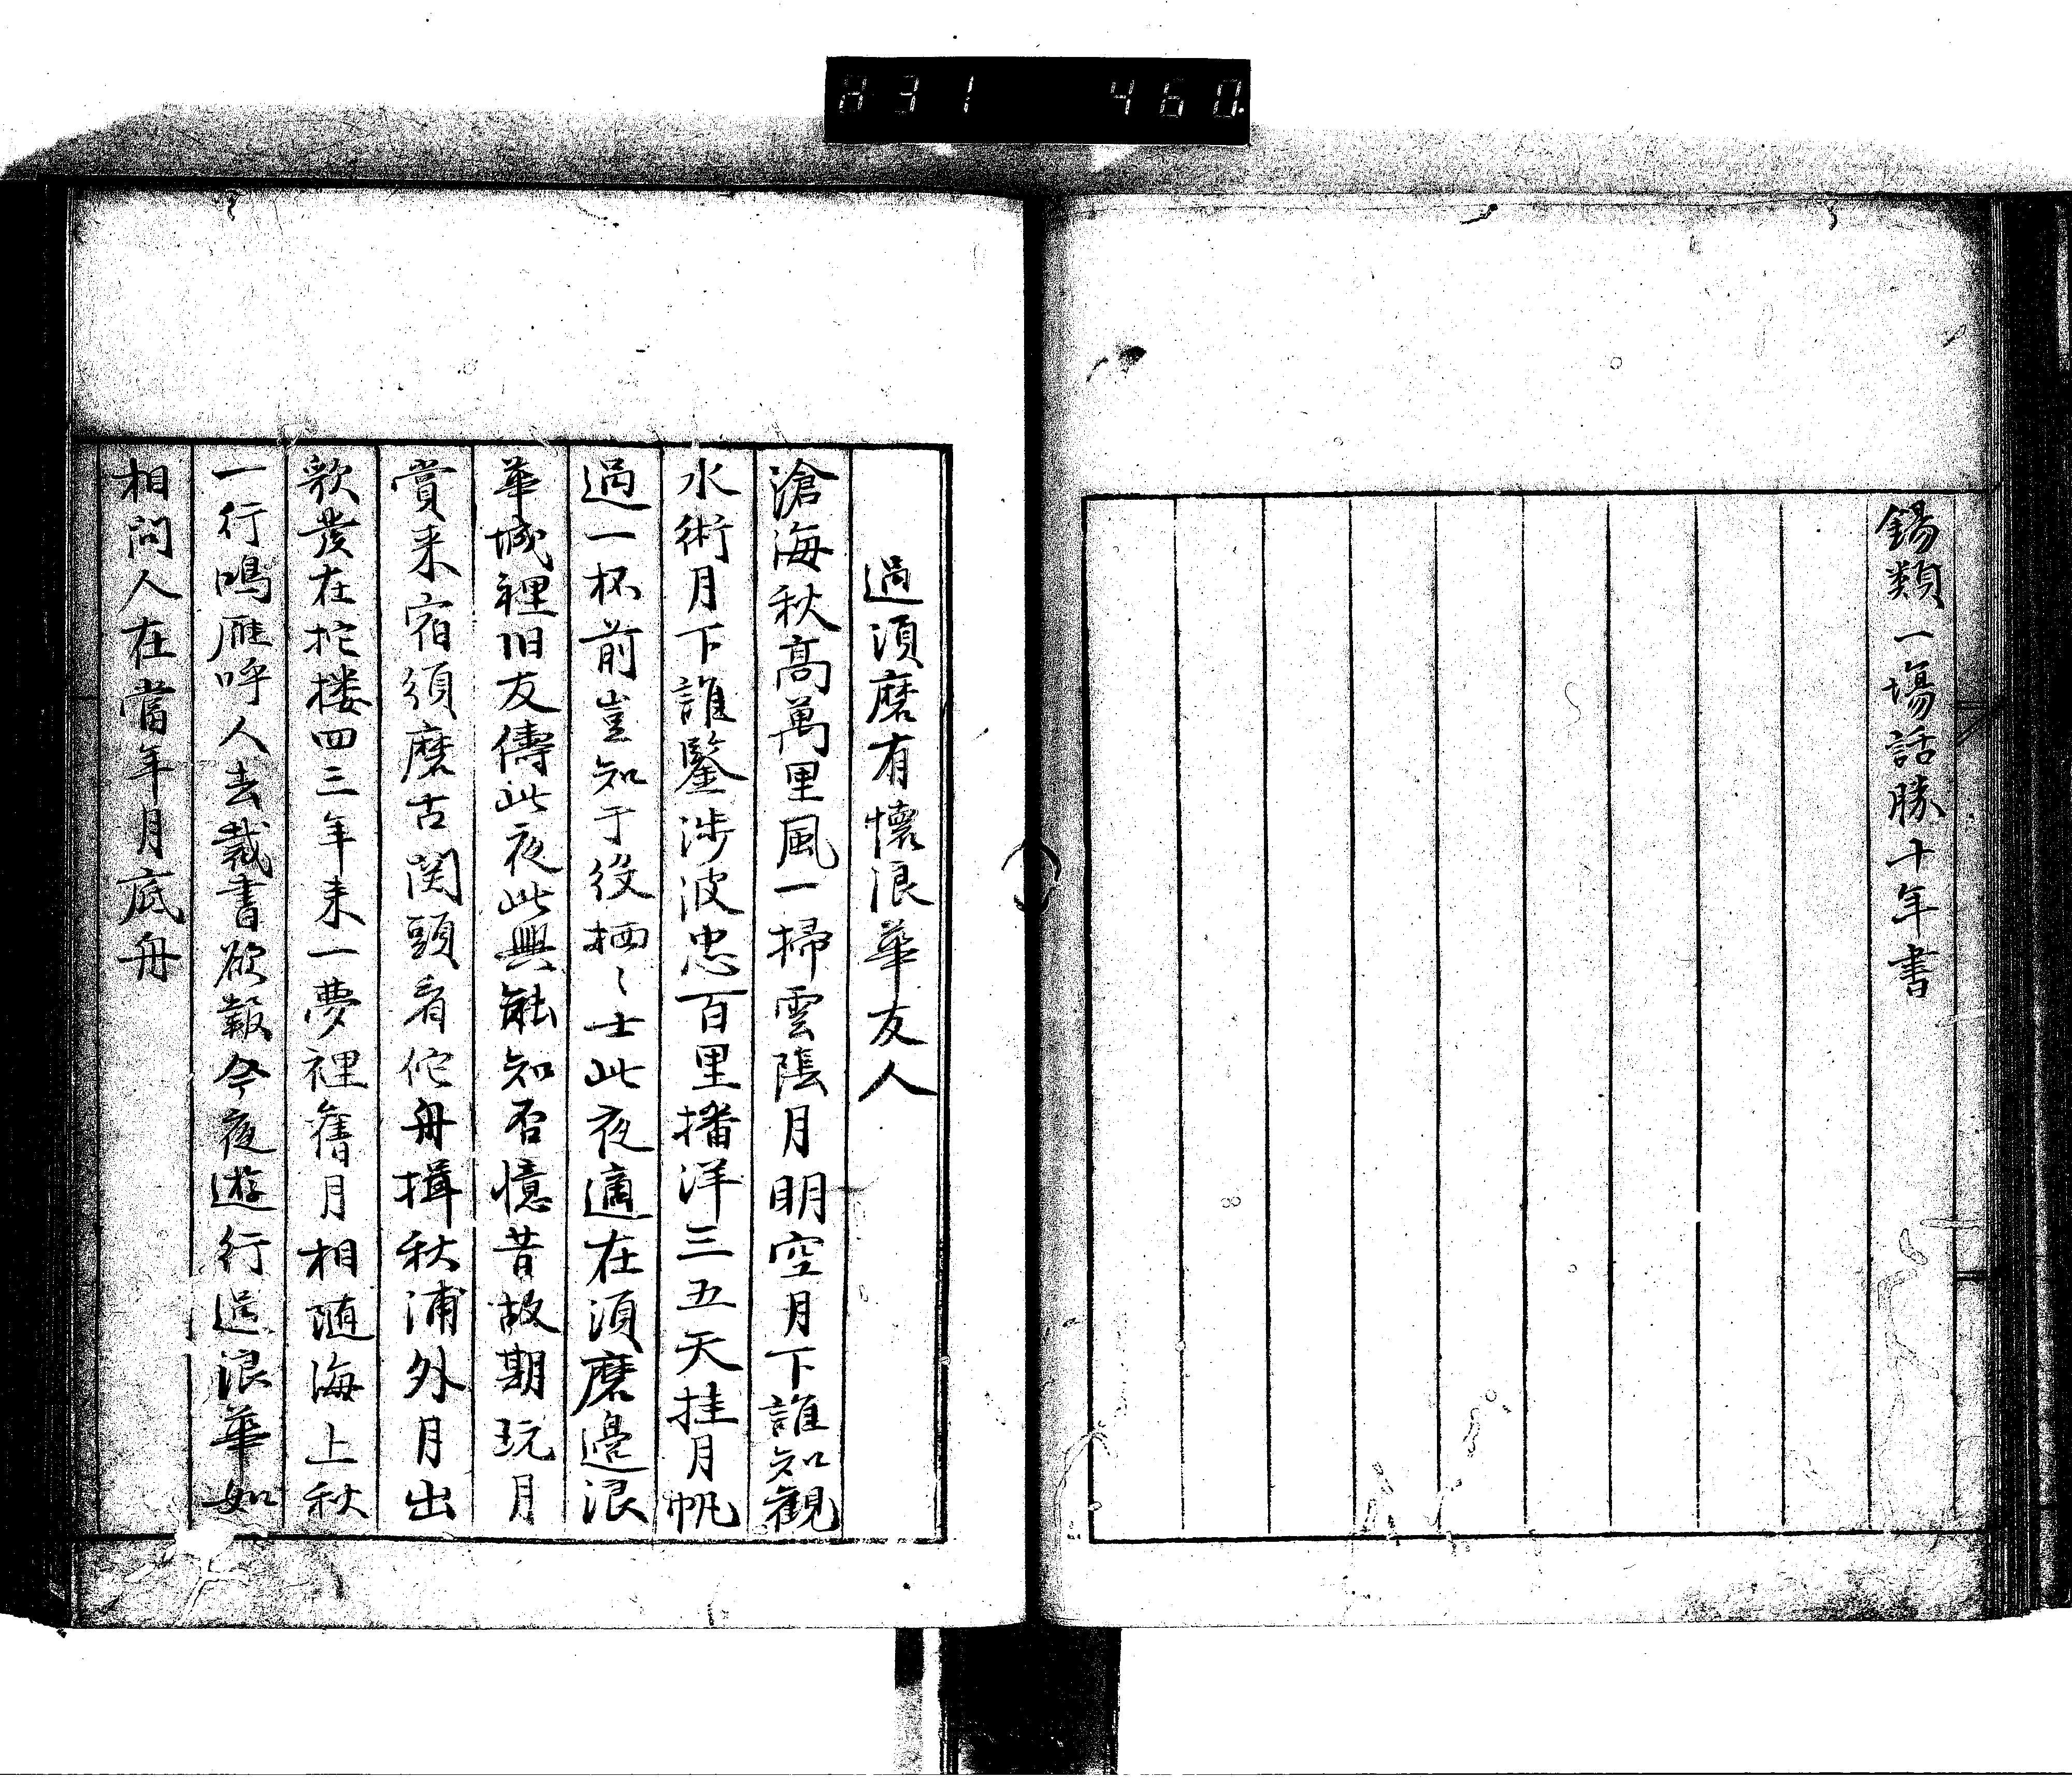 831 460
錫類一場話勝十年書
過須磨有懐浪華友人
滄海秋高萬里風一掃雲隂月明空月下誰知観
水術月下誰鑒渉波忠百里播洋三五天挂月帆
過一杯前豈知于役栖〻士此夜適在須磨邉浪
華城裡旧友傳此夜此興能知否憶昔故期玩月
賞来宿須磨古関頭看佗舟揖秋浦外月出
歌發在柁楼四三年来一夢裡舊月相随海上秋
一行鳴雁呼人去裁書欲報今夜遊行逗浪華如
相問人在當年月底舟